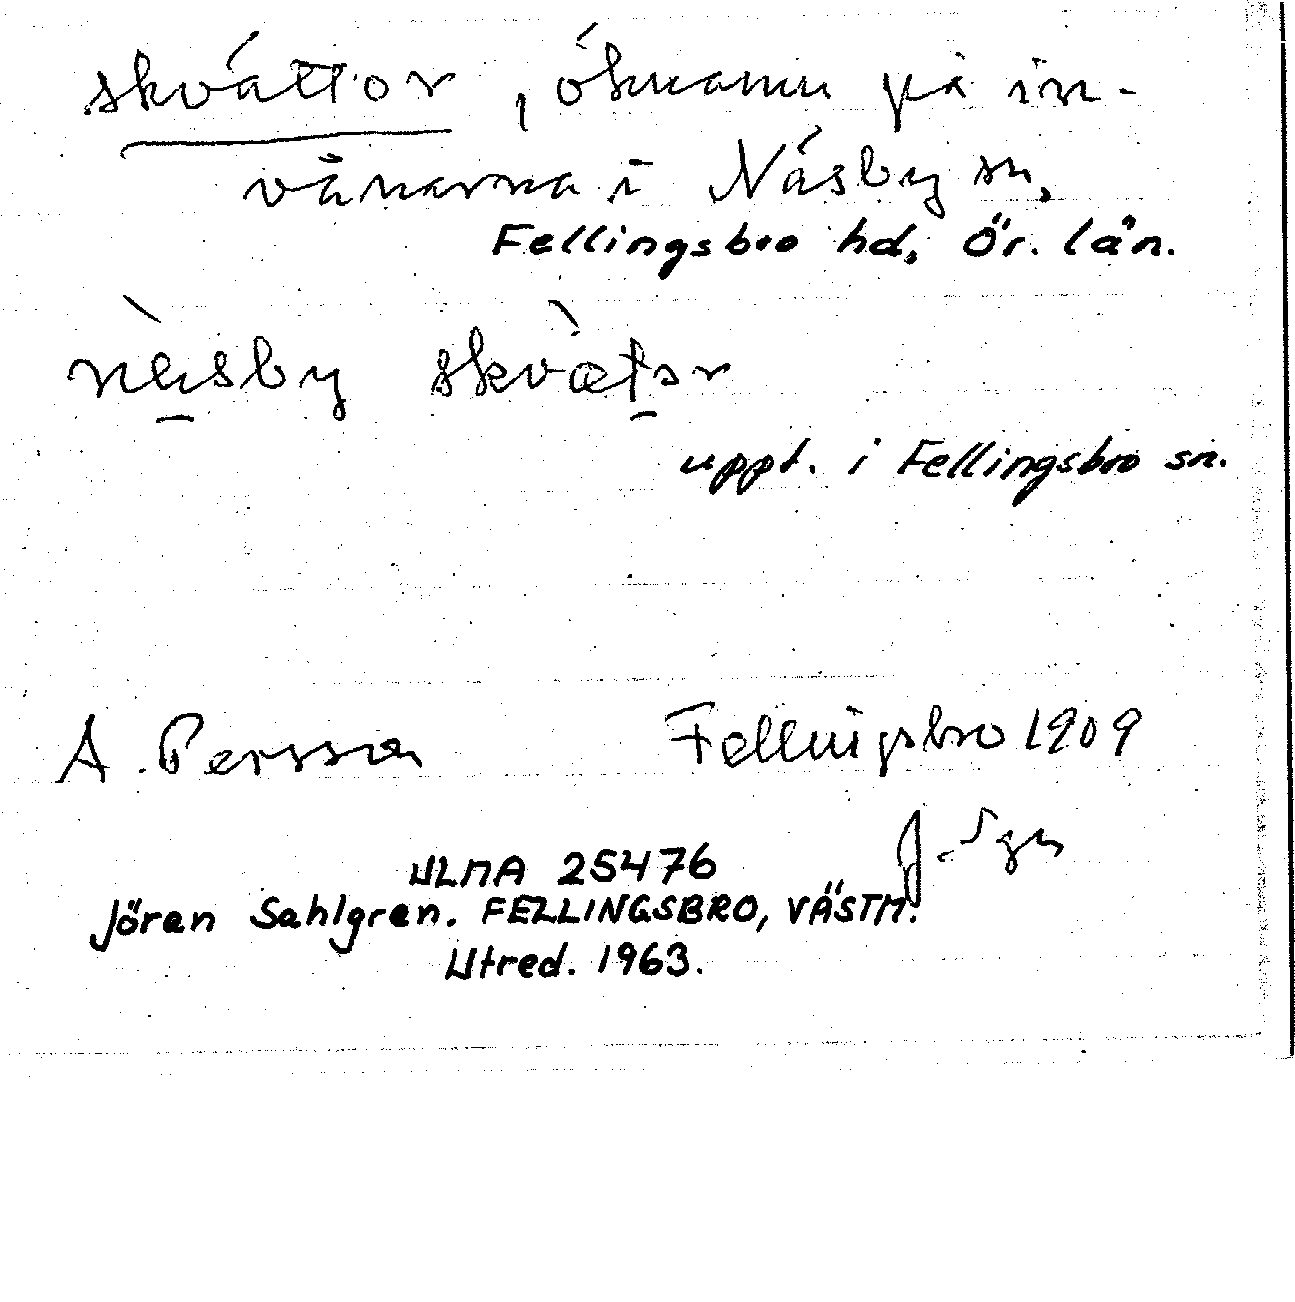 skvättor, öknamn på in-
vånarna i Näsby sn,
Fellingsbro hd, Ör. län.
nèsby skvætər
uppt. i Fellingsbro sn.
A. Persson Fellingsbro 1909
J. Sgn
ULMA 25476
Jöran Sahlgren. FELLINGSBRO, VÄSTM.
Utred. 1963.